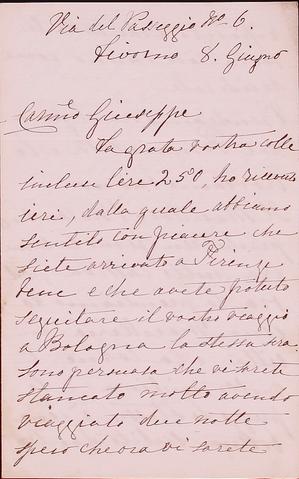 Via del Passeggio No 6.
Livorno 8. Giugno
Carmo Giuseppe
La grata vostra colle
incluse lire 250, ho ricevuto
ieri, dalla quale abbiamo
sentito con piacere che
siete arrivato a Firenze
bene e che avete potuto
seguitare il vostro viaggio
a Bologna la stessa sera
sono persuasa che vi sarete
stancato molto avendo
viaggiato due notte
spero che ora vi sarete